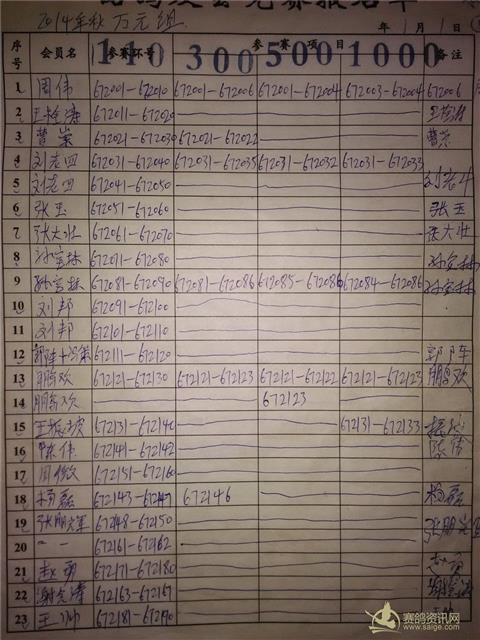 2014年秋 万元组 年 1月1日
序号 会员名 参赛环号 参赛项目 备注
110 300 500 1000
1 周伟 672001-672010 672001-672006 672001-672004 672003-672004 672006
2 672011-672020
3 曹崇 672021-672030 672021-672022 曹崇
4 刘老四 672031-672040 672031-672035 672031-672032 672031-672033
5 刘老四 672041-672050
6 张玉 672051-672060 张玉
7 张大壮 672061-672070 张大壮
8 孙宝林 672071-672080 孙宝林
9 孙宝林 672081-672090 672081-672086 672085-672086 672084-672086 孙宝林
10 刘邦 672091-672100
11 刘邦 672101-672110
12 672111-672120
13 鹏欢 672121-672130 672121-672123 672121-672122 672121-672123 鹏欢
14 鹏欢 672123
15 672131-672140 672131-672133
16 陈伟 672141-672142
17 周微 672151-672160
18 杨磊 672143-672147 672146 杨磊
19 672148-672150
20 672161-672162
21 赵勇 672171-672180
22 672163-672167
23 王帅 672181-672190
赛鸽资讯网
www.saige.com